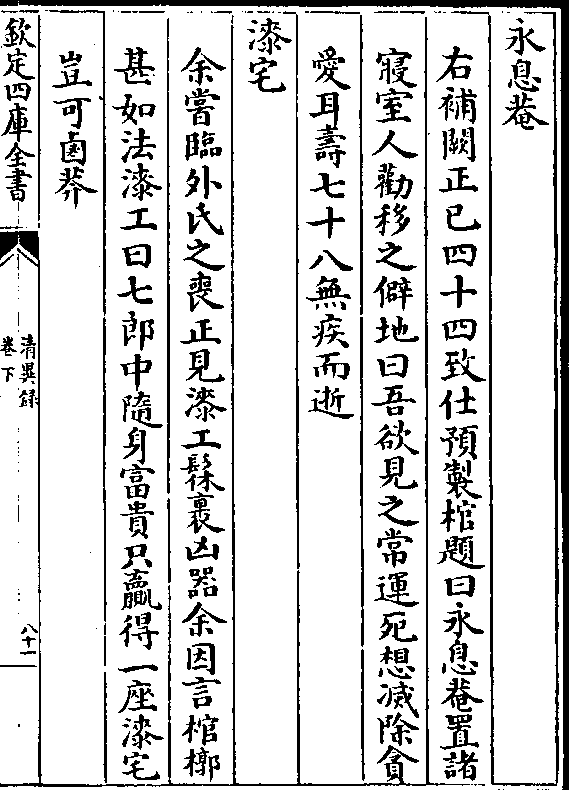 永息菴
右補闕正己四十四致仕預製棺題曰永息菴置諸
寢室人勸移之僻地曰吾欲見之常運死想滅除貪
愛耳壽七十八無疾而逝
漆宅
余嘗臨外氏之喪正見漆工髹裹凶器余因言棺槨
甚如法漆工曰七郎中隨身富貴只贏得一座漆宅
豈可鹵莽
欽定四庫全書
清異録
卷下
八十一